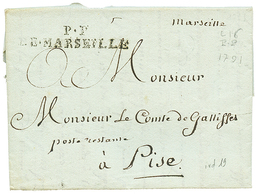 Marseille
P.P
MARSEILLE
A Monsieur
Monsieur Le Comte de Galliffet
poste restante
à Pise.